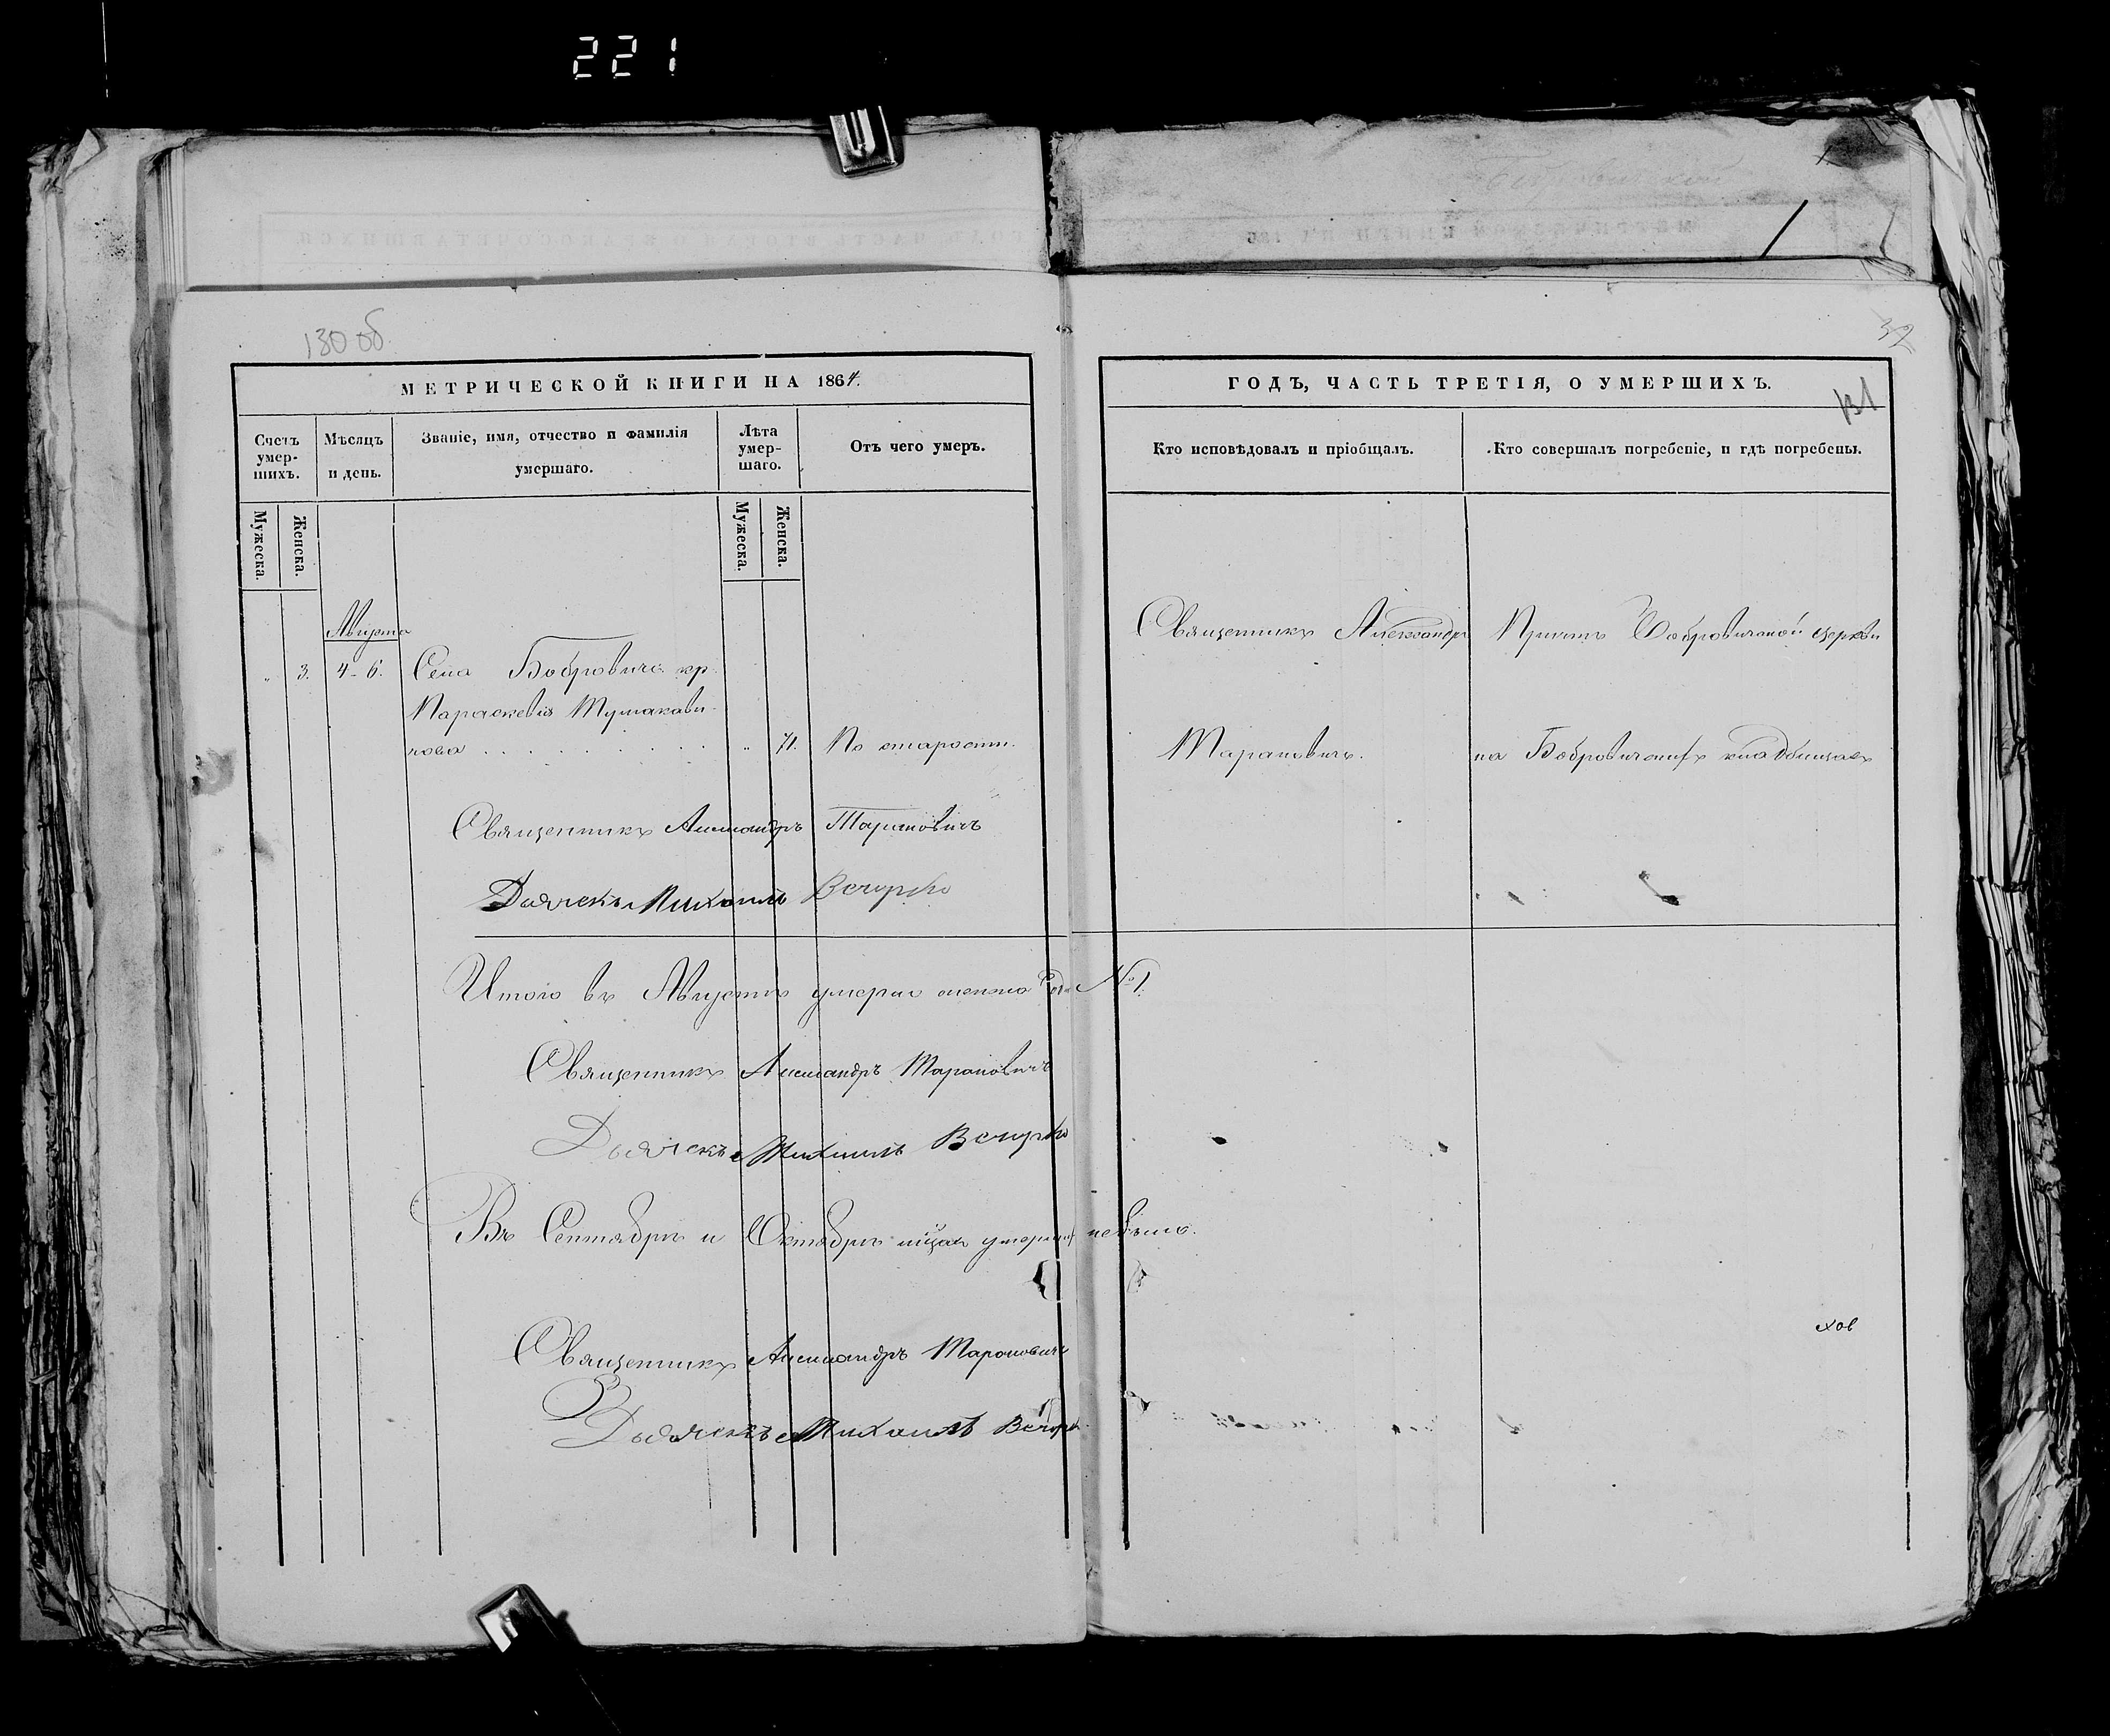 221
130 об
32
131
МЕТРИЧЕСКОЙ КНИГИ НА 1864.
ГОДЪ, ЧАСТЬ ТРЕТІЯ, О УМЕРШИХЪ.
Счетъ умер-
шихъ.
Мѣсяцъ
и день.
Званіе, имя, отчество и фамилія
умершаго.
Лѣта
умер-
шаго.
Отъ чего умеръ.
Кто исповѣдовалъ и пріобщалъ.
Кто совершалъ погребеніе, и гдѣ погребены.
Мужеска.
Женска.
Мужеска.
Женска.
Августа
" 3. 4-6. Села Бобровичъ кр.
Параскевія Тумакави-
кова " 71. По старости.
Священникъ Александръ
Тарановичъ.
Причтъ Бобровичской церкви
на Бобровичскихъ кладбищахъ
Священникъ Александръ Тарановичъ
Дьячекъ Михаилъ Вечорко
Итого въ Августѣ умерло женска №1
Священникъ Александръ Тарановичъ
Дьячекъ Михаилъ Вечорко
Въ Сентябрѣ и Октябрѣ мцахъ умершихъ небыло.
Священникъ Александръ Тарановичъ
Дьячекъ Михаилъ Вечорко